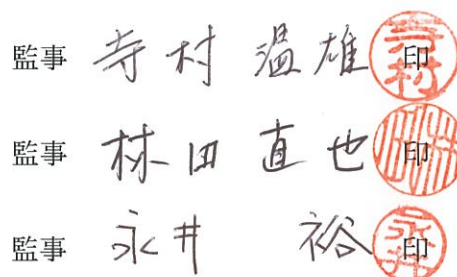 監事 寺村 温雄 印
監事 林田 直也 印
監事 永井 裕 印